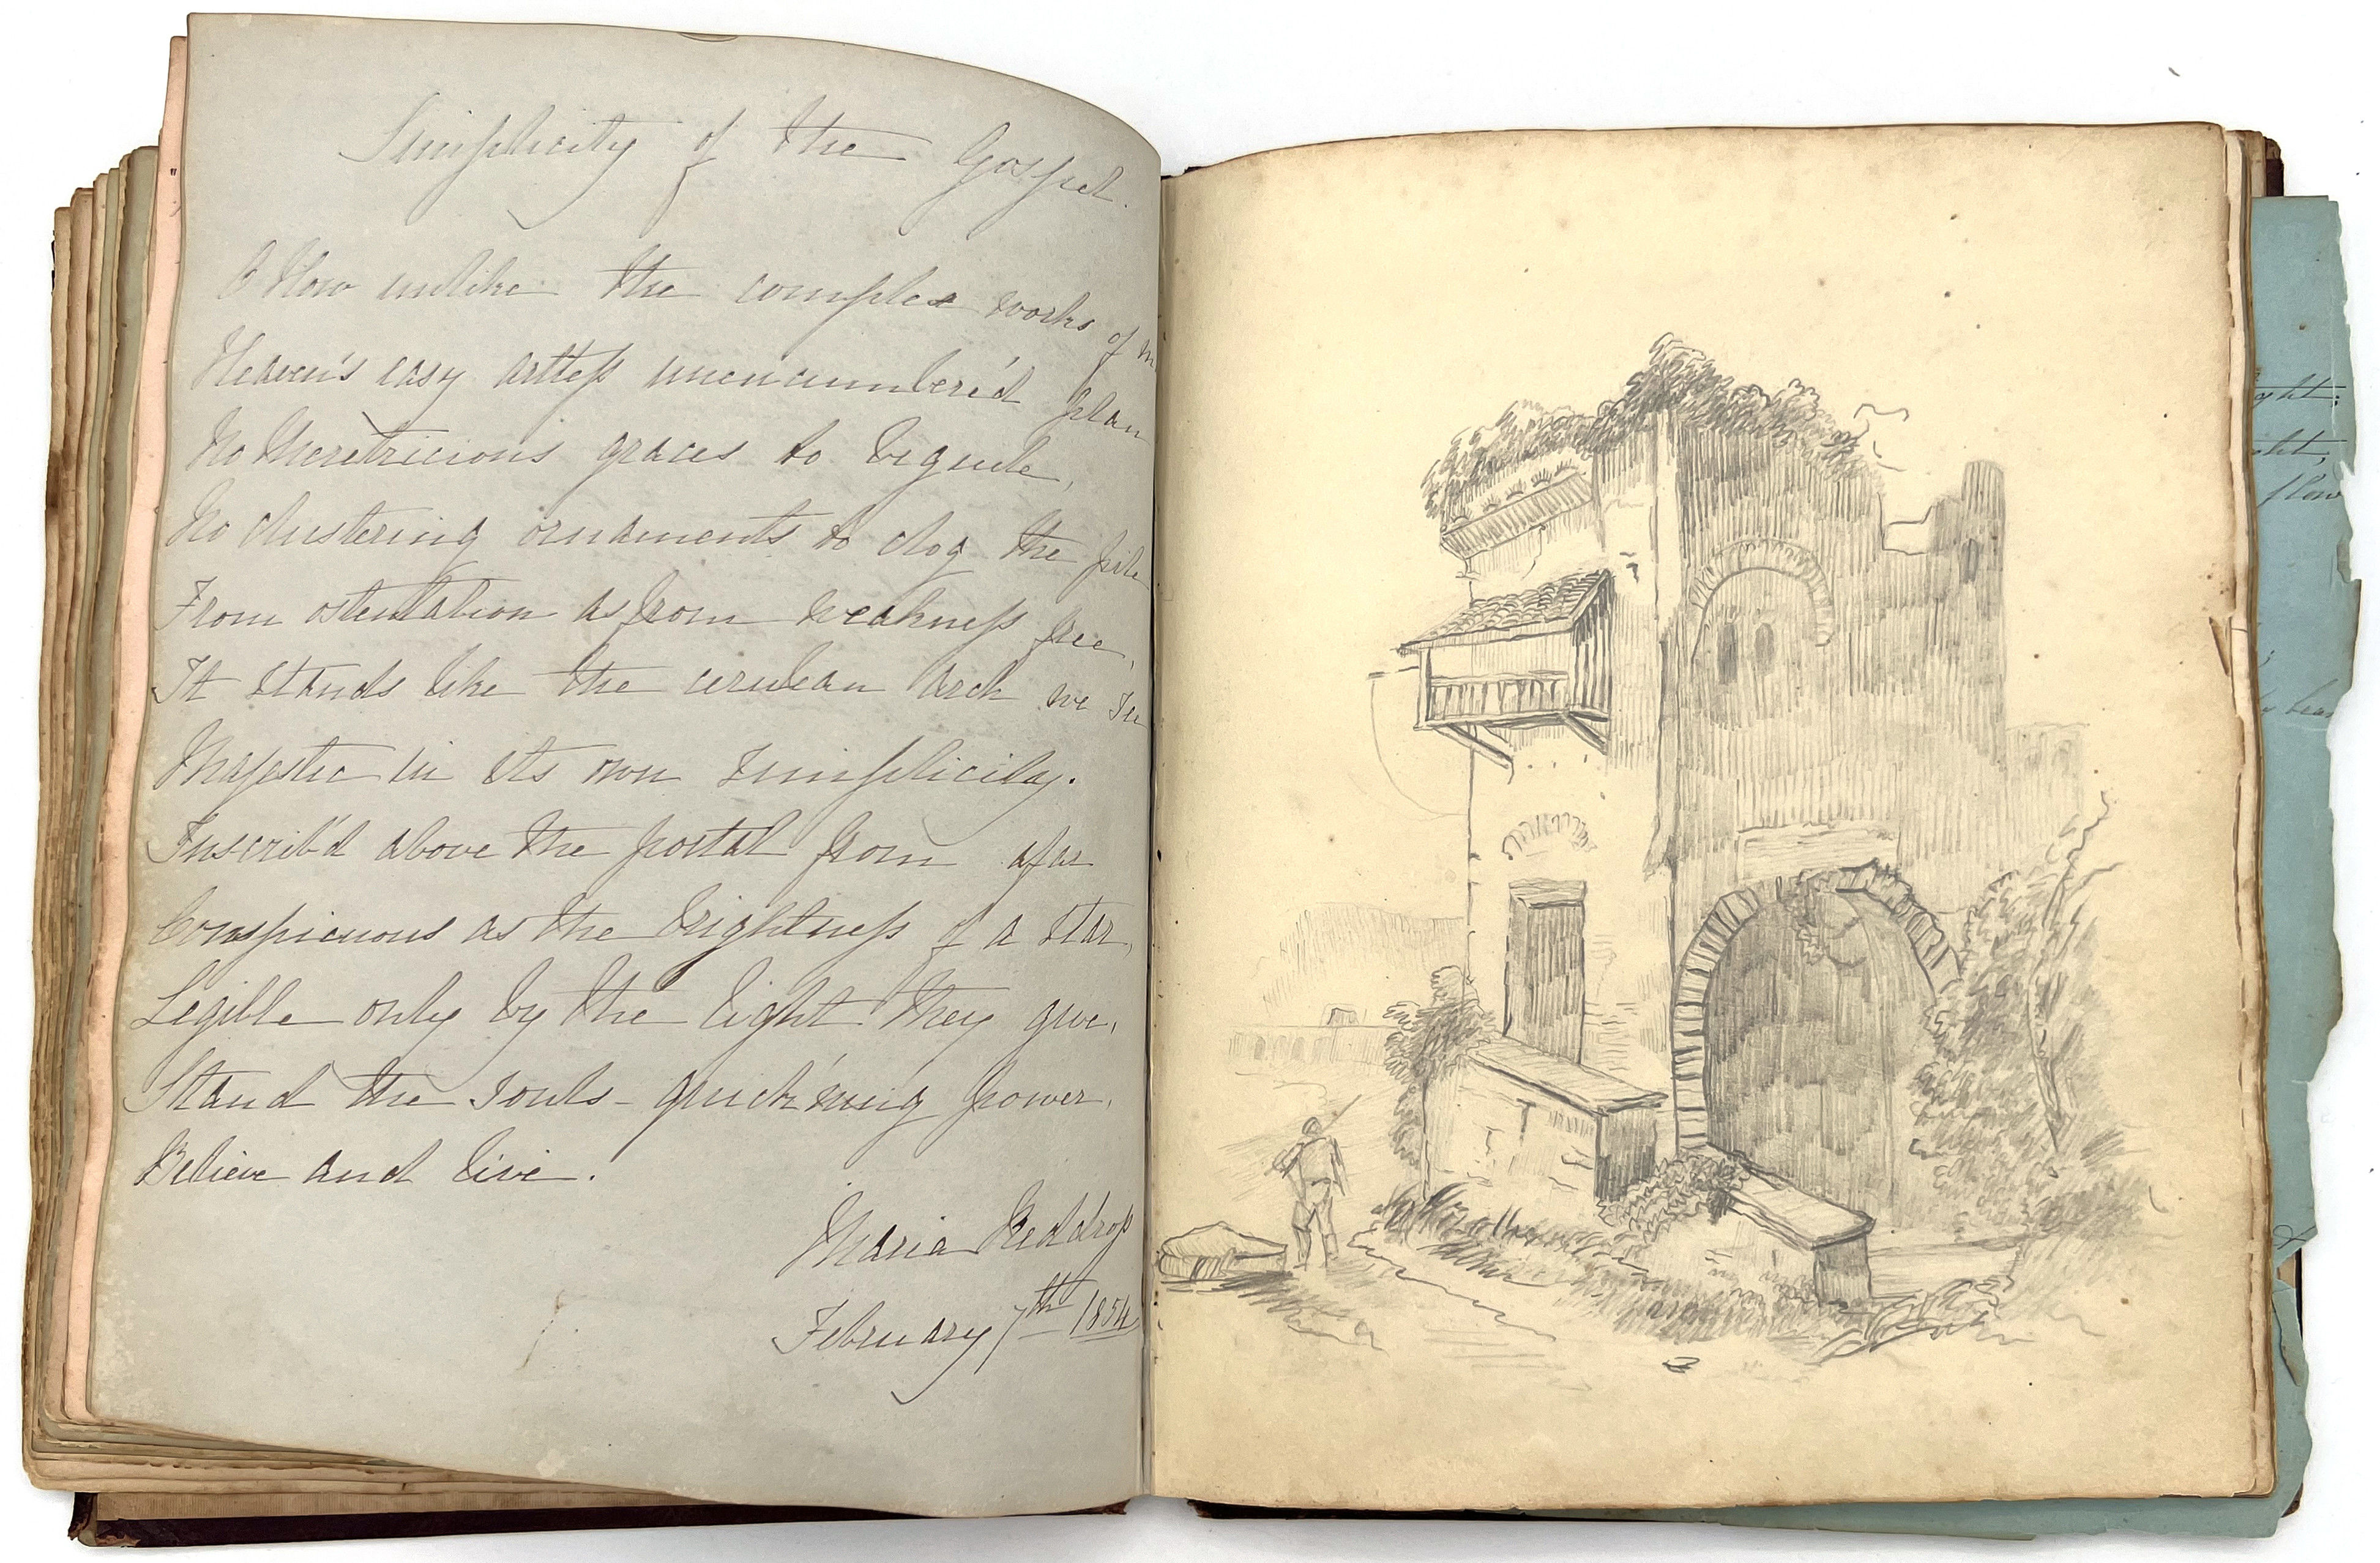 Simplicity of the Gospel.
O How unlike the complex works of m
Heaven's easy artless unencumber'd plan
No Meretricious graces to beguile,
No clustering ornaments to clog the pile
From ostentation as from weakness free,
It stands like the cerulean arch we see
Majestic in its own simplicity.
Inscrib'd above the portal from afar
Conspicuous as the brightness of a star,
Legible only by the light they give,
Stand the souls-quick'ning power,
Believe and live.
Maria Reddrop
February 7th 1854
ght;
ght,
flow